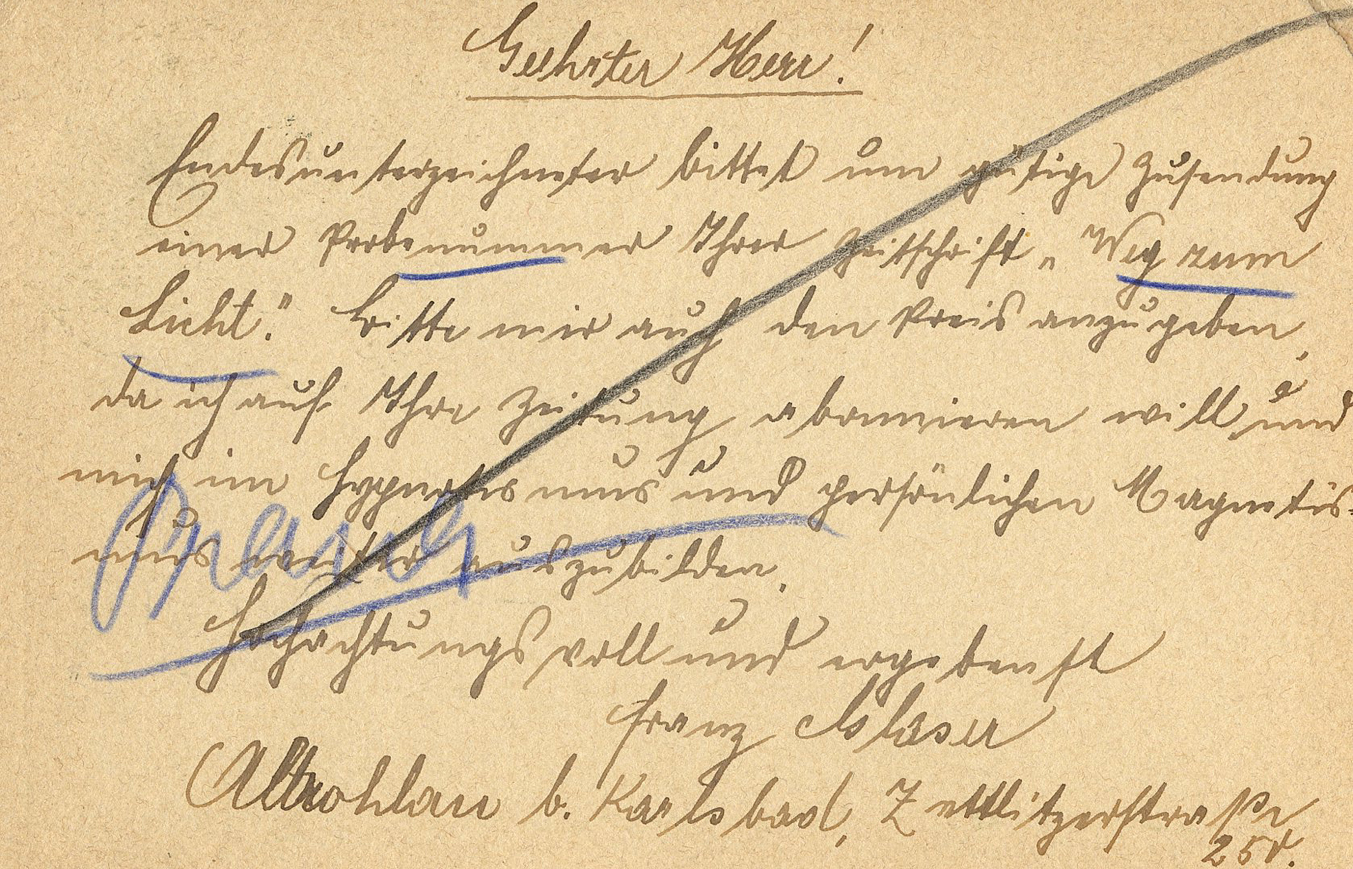 Geehrter Herr!
Endesunterzeichneter bittet um gütige Zusendung
einer Probenummer Ihrer Zeitschrift „Weg zum
Licht." Bitte mir auch den Preis anzugeben,
da ich auf Ihre Zeitung abonnieren will und
mich im Hypnotismus und persönlichen Magnetis-
mus weiter auszubilden.
Hochachtungsvoll und ergebenst
Franz Glaser
Altrohlau b. Karlsbad, Zettlitzerstraße
258.